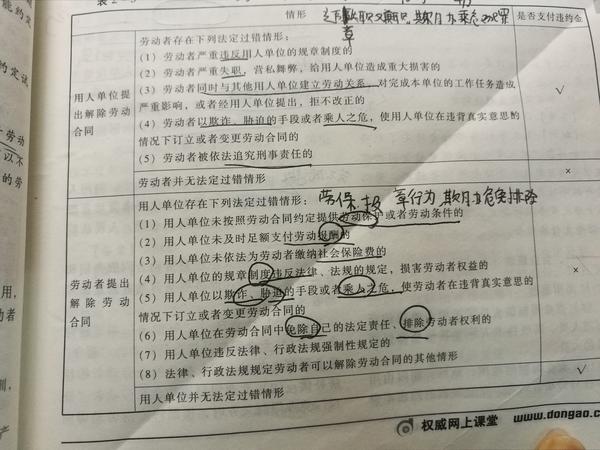 能约定
约定试
劳动
以不
的劳
用，
动者
训，
产
情形
是否支付违约金
章
用人单位提
出解除劳动
合同
劳动者存在下列法定过错情形：
（1）劳动者严重违反用人单位的规章制度的
（2）劳动者严重失职，营私舞弊，给用人单位造成重大损害的
（3）劳动者同时与其他用人单位建立劳动关系，对完成本单位的工作任务造成
严重影响，或者经用人单位提出，拒不改正的
（4）劳动者以欺诈、胁迫的手段或者乘人之危，使用人单位在违背真实意思的
情况下订立或者变更劳动合同的
（5）劳动者被依法追究刑事责任的
√
劳动者并无法定过错情形
×
劳动者提出
解除劳动
合同
用人单位存在下列法定过错情形：劳保 报 章行为 欺 危免排险
（1）用人单位未按照劳动合同约定提供劳动保护或者劳动条件的
（2）用人单位未及时足额支付劳动报酬的
（3）用人单位未依法为劳动者缴纳社会保险费的
（4）用人单位的规章制度违反法律、法规的规定，损害劳动者权益的
（5）用人单位以欺诈、胁迫的手段或者乘人之危，使劳动者在违背真实意思的
情况下订立或者变更劳动合同的
（6）用人单位在劳动合同中免除自己的法定责任、排除劳动者权利的
（7）用人单位违反法律、行政法规强制性规定的
（8）法律、行政法规规定劳动者可以解除劳动合同的其他情形
×
用人单位并无法定过错情形
√
权威网上课堂 www.dongao.c